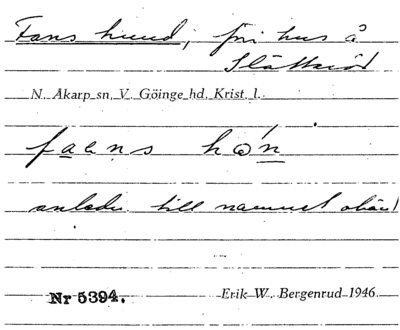 Fans hund, frihus å
Slättaröd
N. Åkarp sn, V. Göinge hd, Krist. l.
faens hon
anledn. till namnet okänd
Nr 5394.
Erik W. Bergenrud 1946